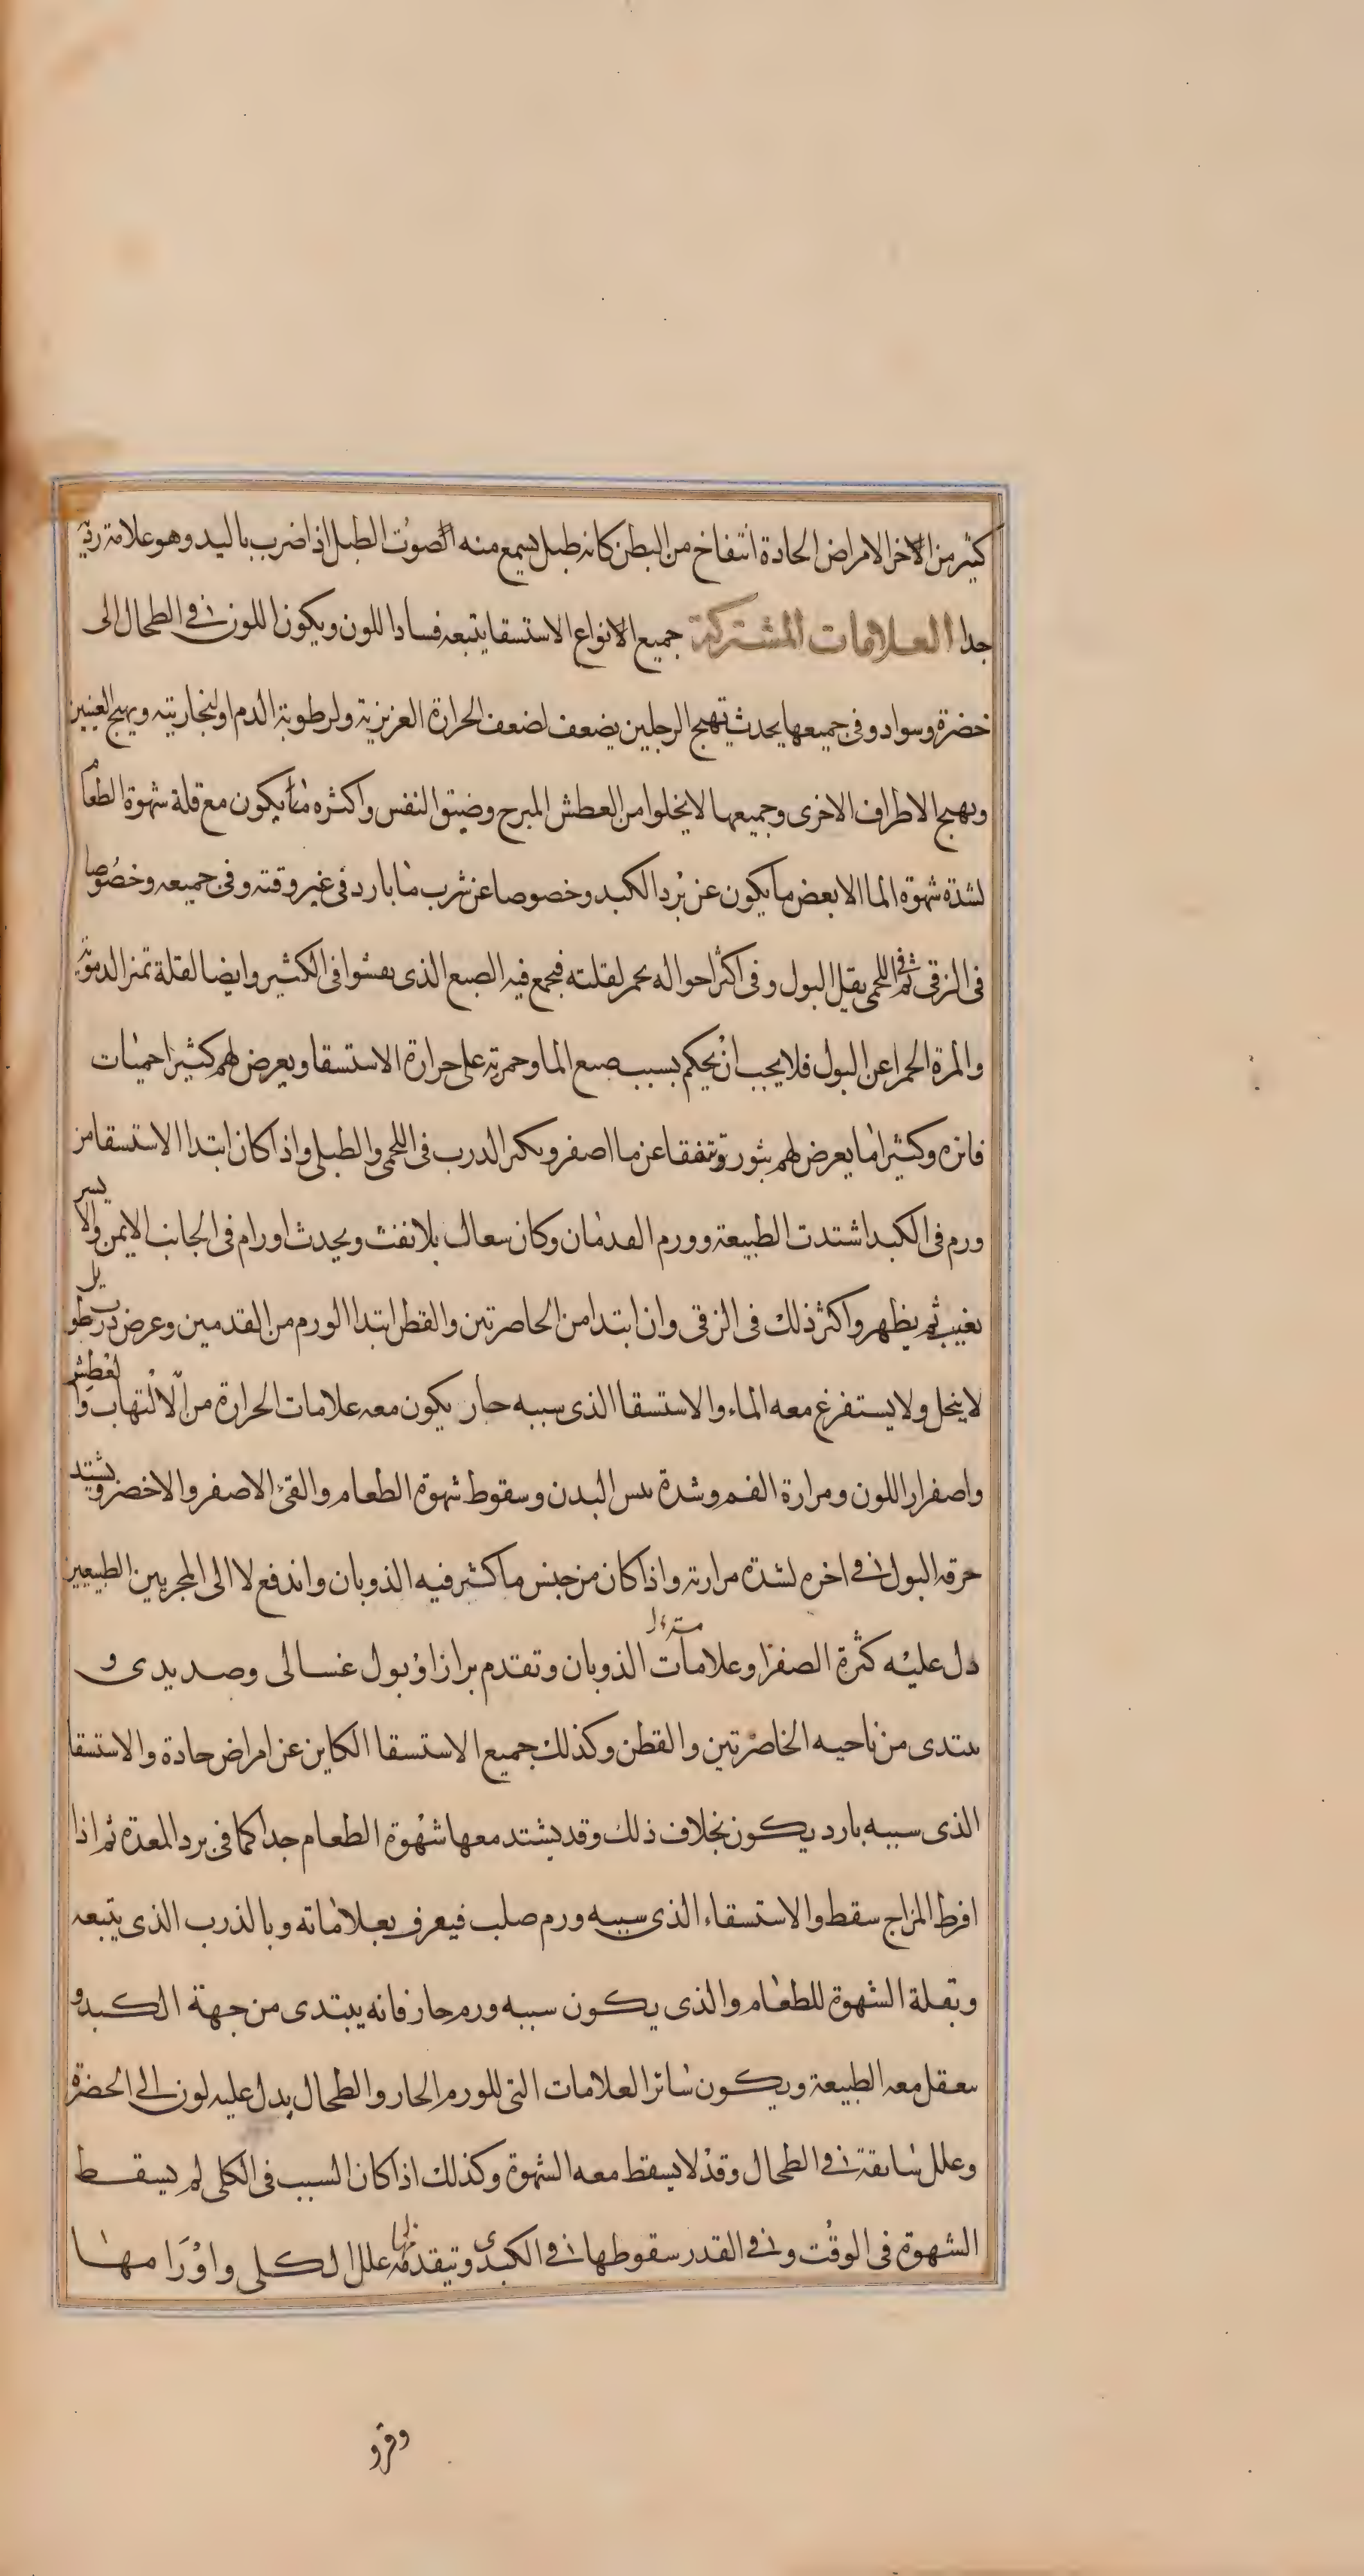 كثير من الاخر الامراض الحادة انتفاخ من البطن كانه طبل يسمع منه الصوت الطبل اذا ضرب باليد وهو علامة ردية
جدا العلامات المشتركة جميع الانواع الاستسقا يتبعه فساد اللون ويكون اللون في الطحال الى
خضرة وسواد وفى جميعها يحدث تهيج الرجلين يضعف لضعف الحرارة العزيزية ولرطوبة الدم او لبخاريته ويهيج العينين
وبهيج الاطراف الاخرى وجميعها لا يخلوا من العطش المبرح وضيق النفس واكثره مما يكون مع قلة شهوة الطعام
لشدة شهوة الما الا بعض ما يكون عن برد الكبد وخصوصا عن شرب ما بارد فى غير وقته وفى جميعه وخصوصا
فى الزقى ثم فى اللحمى يقل البول وفى اكثر احواله يحمر لقلته فيجمع فيه الصبع الذى يفشوا فى الكثير وايضا لقلة تمنر الدموية
والمرة الحمرا عن البول فلا يجب ان يحكم بسبب صبع الما وحمرته على حرارة الاستسقا ويعرض لهم كثيرا حميات
فاتره وكثيرا ما يعرض لهم بثور تتفقا عن ما اصفر ويكثر الدرب فى اللحمى والطبلى واذا كان ابتدا الاستسقا من
ورم فى الكبد اشتدت الطبيعة وورم القدمان وكان سعال بلا نفث ويحدث اورام فى الجانب الايمن والايسر
يغيب ثم يظهر واكثر ذلك فى الزقى وان ابتدا من الخاصرتين والقطن ابتدا الورم من القدمين وعرض درب طويل
لا ينحل ولا يستفرغ معه الماء والاستسقا الذى سببه حار يكون معه علامات الحرارة من الالتهاب والعطش
واصفرار اللون ومرارة الفم وشدة يبس البدن وسقوط شهوة الطعام والقئ الاصفر والاخضر ويشتد
حرقة البول فى اخره لشدة مرارته واذا كان من جنس ما كثير فيه الذوبان واندفع لا الى المجريين الطبيعين
دل عليه كثرة الصفرا وعلامات الذوبان وتقدم براز او بول غسالى وصديدى و
يبتدى من ناحيه الخاصرتين والقطن وكذلك جميع الاستسقا الكاين عن امراض حادة والاستسقا
الذى سببه بارد يكون بخلاف ذلك وقد يشتد معها شهوة الطعام جدا كما فى برد المعدة ثم اذا
افرط المزاج سقط والاستسقاء الذى سببه ورم صلب فيعرف بعلاماته وبالذرب الذى يتبعه
وبقلة الشهوة للطعام والذى يكون سببه ورم حار فانه يبتدى من جهة الكبد و
يعقل معه الطبيعة ويكون سائر العلامات التى للورم الحار والطحال يدل عليه لون الى الخضرة
وعلل سابقة فى الطحال وقد لا يسقط معه الشهوة وكذلك اذا كان السبب فى الكلى لم يسقط
الشهوة فى الوقت وفى القدر سقوطها فى الكبدى وتيقدمه علل الكلى واورامها
وقرو